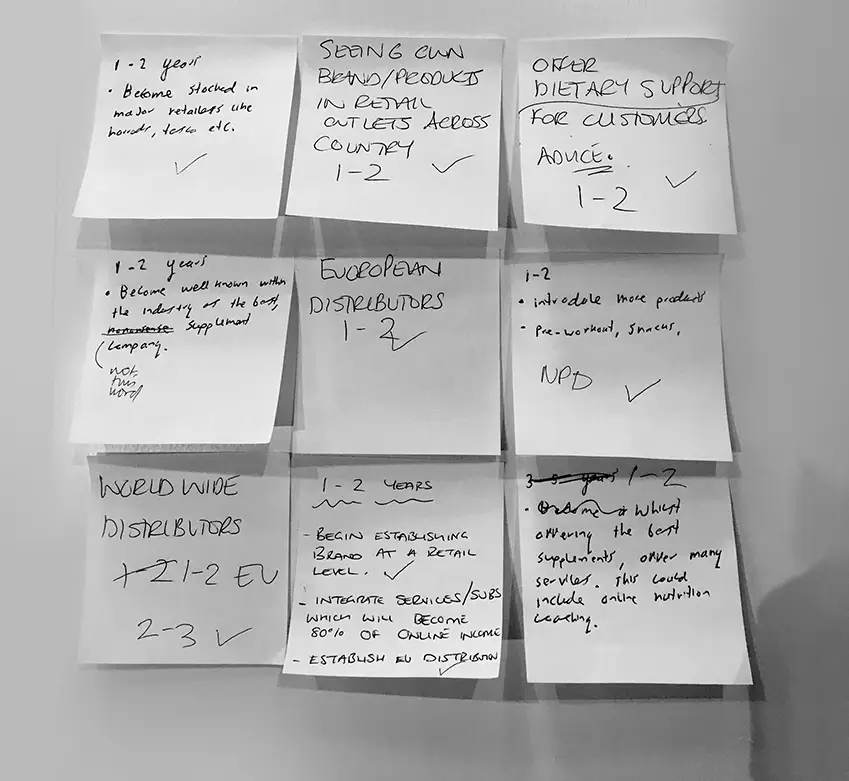 1-2 years
• Become stocked in
major retailers like
harrods, tesco etc.
SEEING OWN
BRAND/PRODUCTS
IN RETAIL
OUTLETS ACROSS
COUNTRY
1-2
OFFER
DIETARY SUPPORT
FOR CUSTOMERS.
ADVICE.
1-2
1-2 years
• Become well known within
the industry as the best,
nononsense supplement
company.
not
this
word
EUOROPEAN
DISTRIBUTORS
1-2
1-2
• introduce more products
- Pre-workout, snacks,
NPD
WORLD WIDE
DISTRIBUTORS
1-2 EU
2-3
1-2 YEARS
- BEGIN ESTABLISHING
BRAND AT A RETAIL
LEVEL.
- INTEGRATE SERVICES/SUBS
WHICH WILL BECOME
80% OF ONLINE INCOME
- ESTABLISH EU DISTRIBUTION
3-5 years 1-2
• Become a whilst
offering the best
supplements, offer many
services. This could
include online nutrition
coaching.